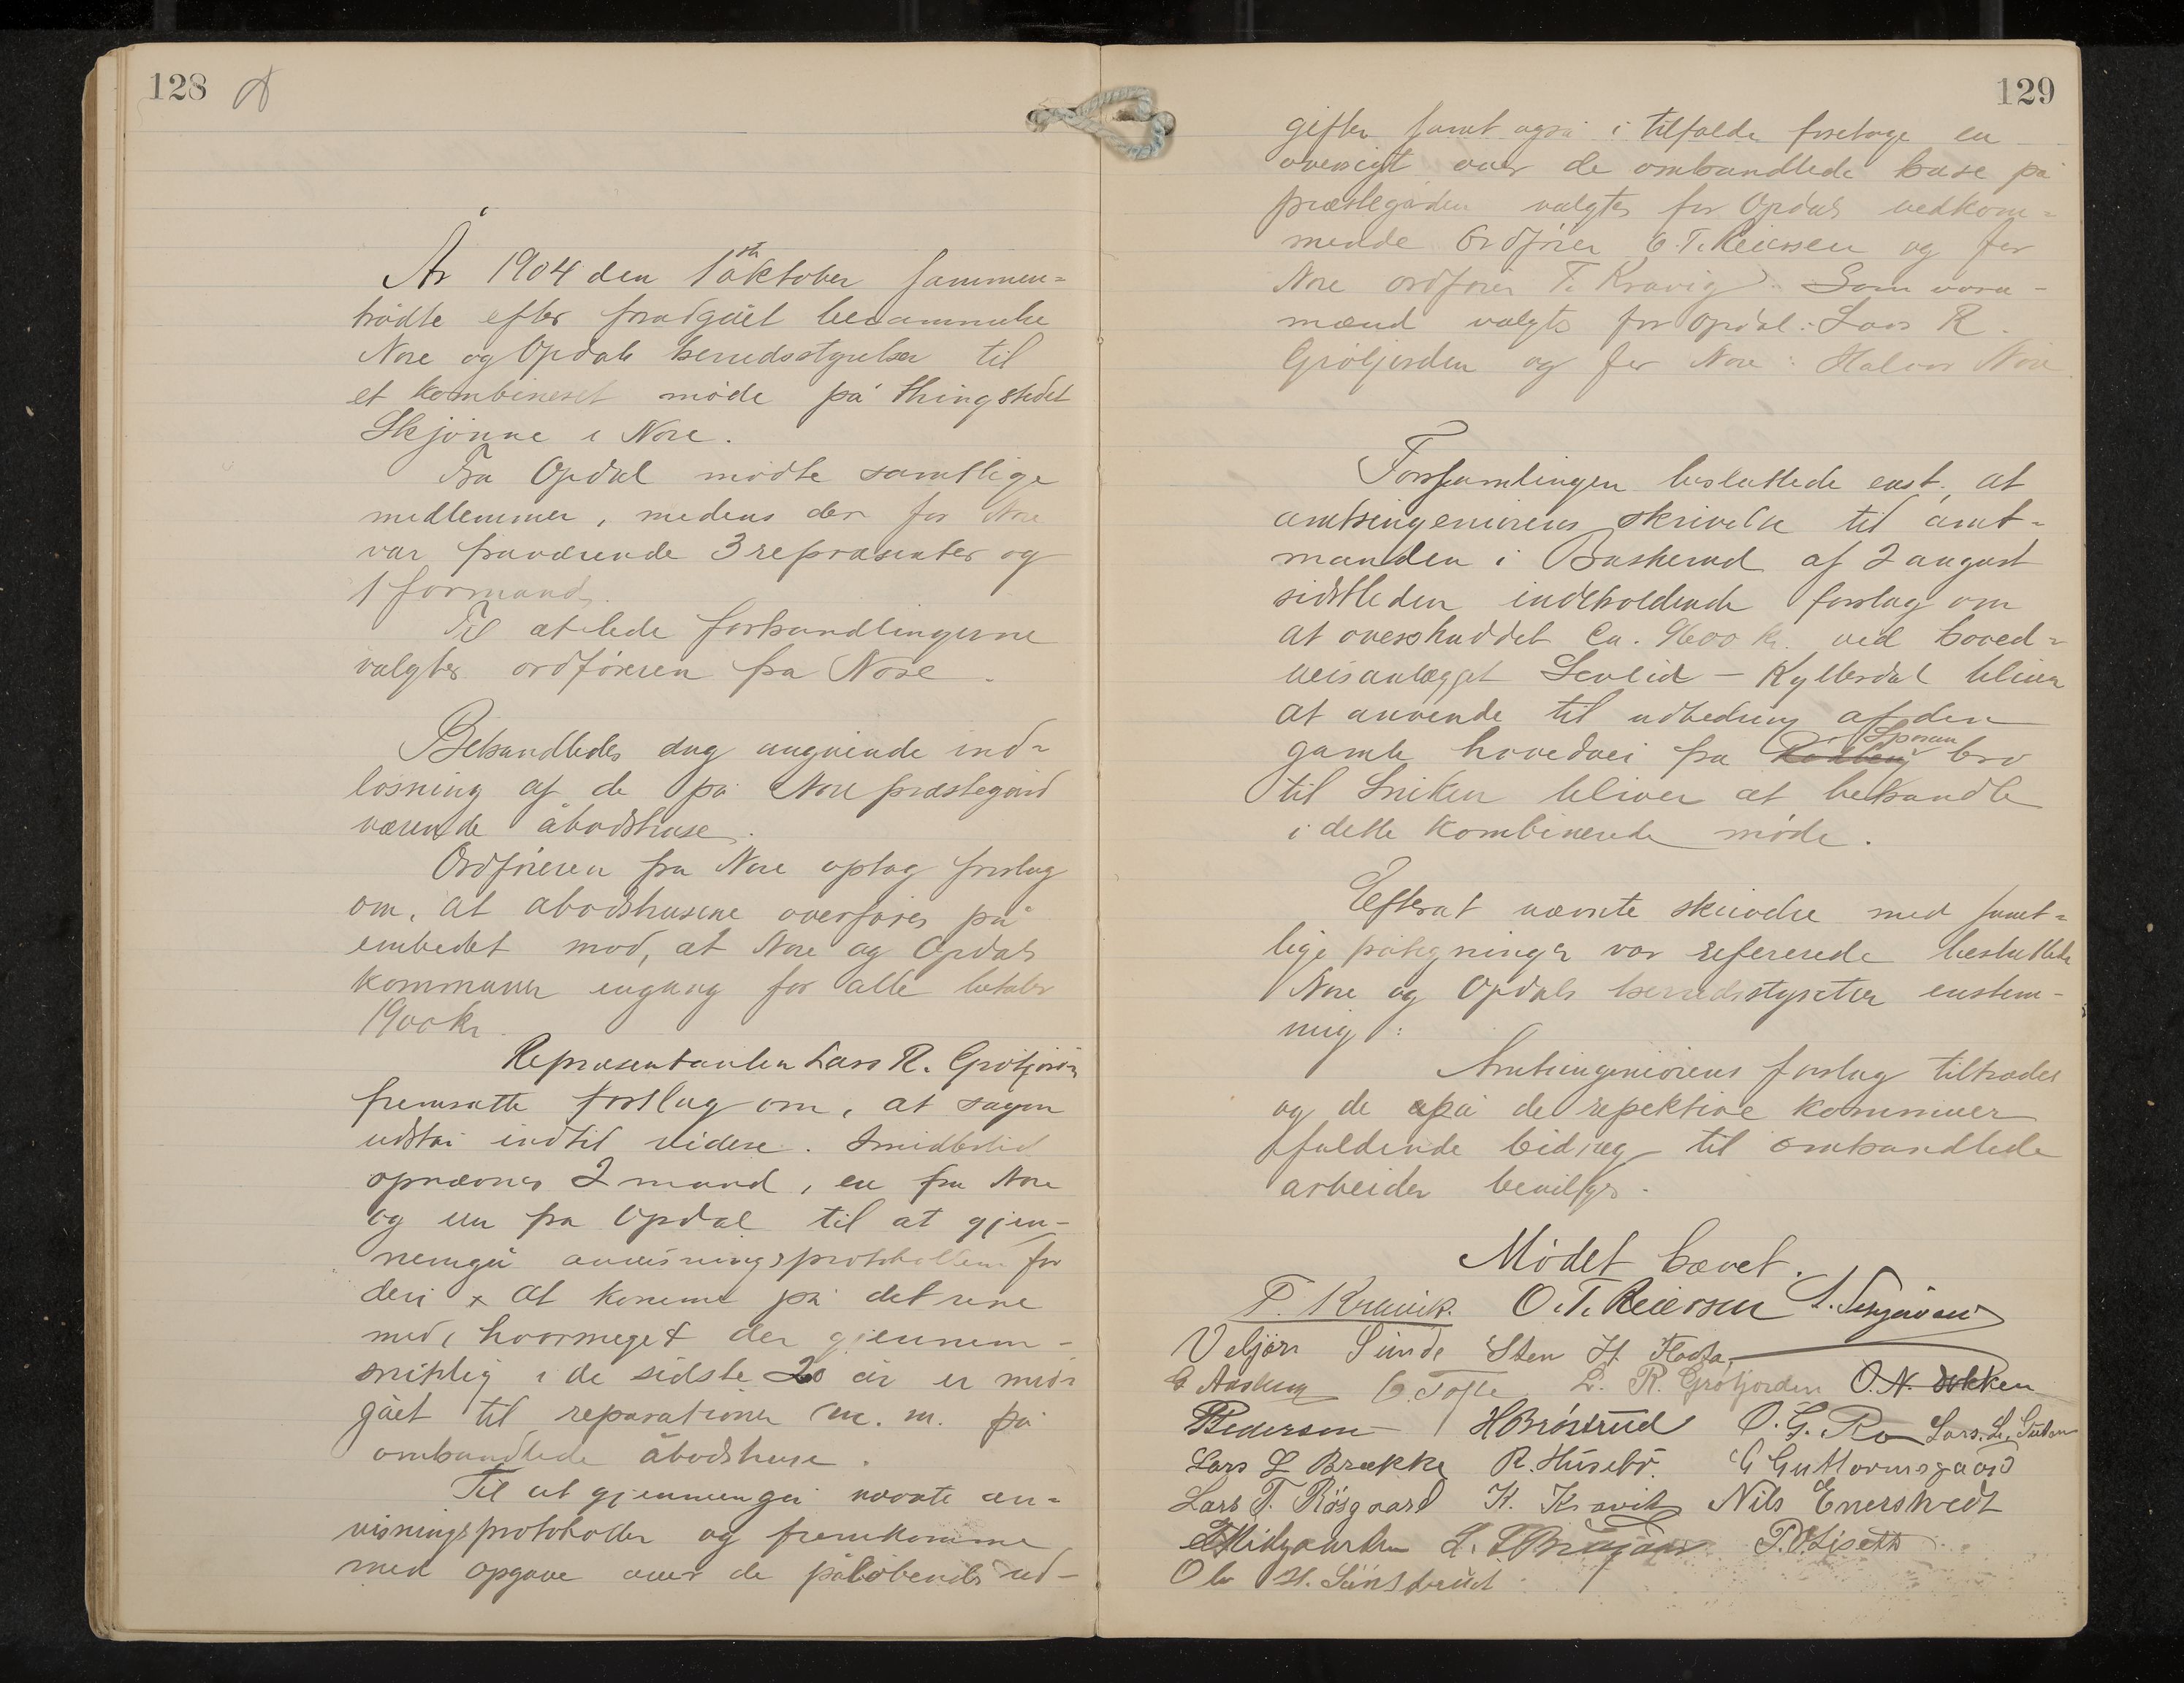 128
År 1904 den 1ste oktober sammen=
trådte efter foradgåët berammelse
Nore og Opdals herredsstyrelser til
et kombineret møde på thingstedet
Skjønne i Nore.
Fra Opdal mødte samtlige
medlemmer, medens der for Nore
var fraværende 3 repræsenter og
1 formand.
Til at lede forhandlingerne
valgtes ordføreren fra Nore.
Behandledes sag angående ind=
løsning af de på Nore præstegård
værende åbodshuse.
Ordføreren fra Nore optog forslag
om, at abodshusene overføres på
embedet mod, at Nore og Opdals
kommuner engang for alle betaler
1900 kr.
Repræsentanten Lars R. Grøtjorden
fremsatte forslag om, at sagen
udstår indtil videre. Imidlertid
opnævnes 2 mand, en fra Nore
og en fra Opdal til at gjen-
nemgå anvisningsprotokollene for
deri x at komme på det rene
med, hvormeget der gjennem-
snitlig i de sidste 20 år er med-
gået til reparationer m. m. på
omhandlede åbodshuse.
Til at gjennemgå nævnte an=
visningsprotokoller og fremkomme
med opgave over de påløbende ud-
129
gifter samt også i tilfælde foretage en
oversigt over de omhandlede huse på
præstegården valgtes for Opdals vedkom=
mende Ordfører O. T. Reiersen og for
Nore ordfører T. Kravig. Som vara-
mænd valgts for Opdal: Lars R.
Grøtjorden og for Nore: Halvor Nore
Forsamlingen besluttede enst. at
amtsingeniørens skrivelse til amt=
manden i Buskerud af 2 august
sidstleden indeholdende forslag om
at overskuddet ca. 9600 kr. ved hoved=
veisanlægget Sevlid - Kyllesdal bliver
at anvende til udbedring af den
Sporan
gamle hovedvei fra bro
til Sniken bliver at behandle
i dette kombinerede møde.
Efterat nævnte skrivelse med samt=
lige påtegninger var refererede besluttede
Nore og Opdals herredsstyrelser enstem-
mig:
Amtsingeniørens forslag tiltrædes
og de på de repektive kommuner
faldende bidrag til omhandlede
arbeider bevilges.
Mødet hævet.
T. Kravik O. T. Reiersen
Vebjørn Sunde Sten H. Flaata
G Aasberg O. Tofte L. R. Grøtjorden O. N. Dokken
Pedersen H Brøstrud O. G. Ro Lars. L.
Lars L Brække R. Husebø. G Guttormsgaard
Lars T. Røsgaard H. Kravik Nils Enerstvedt
T Midgaarden L. T P. O Liseth
Ole H. Sønsterud